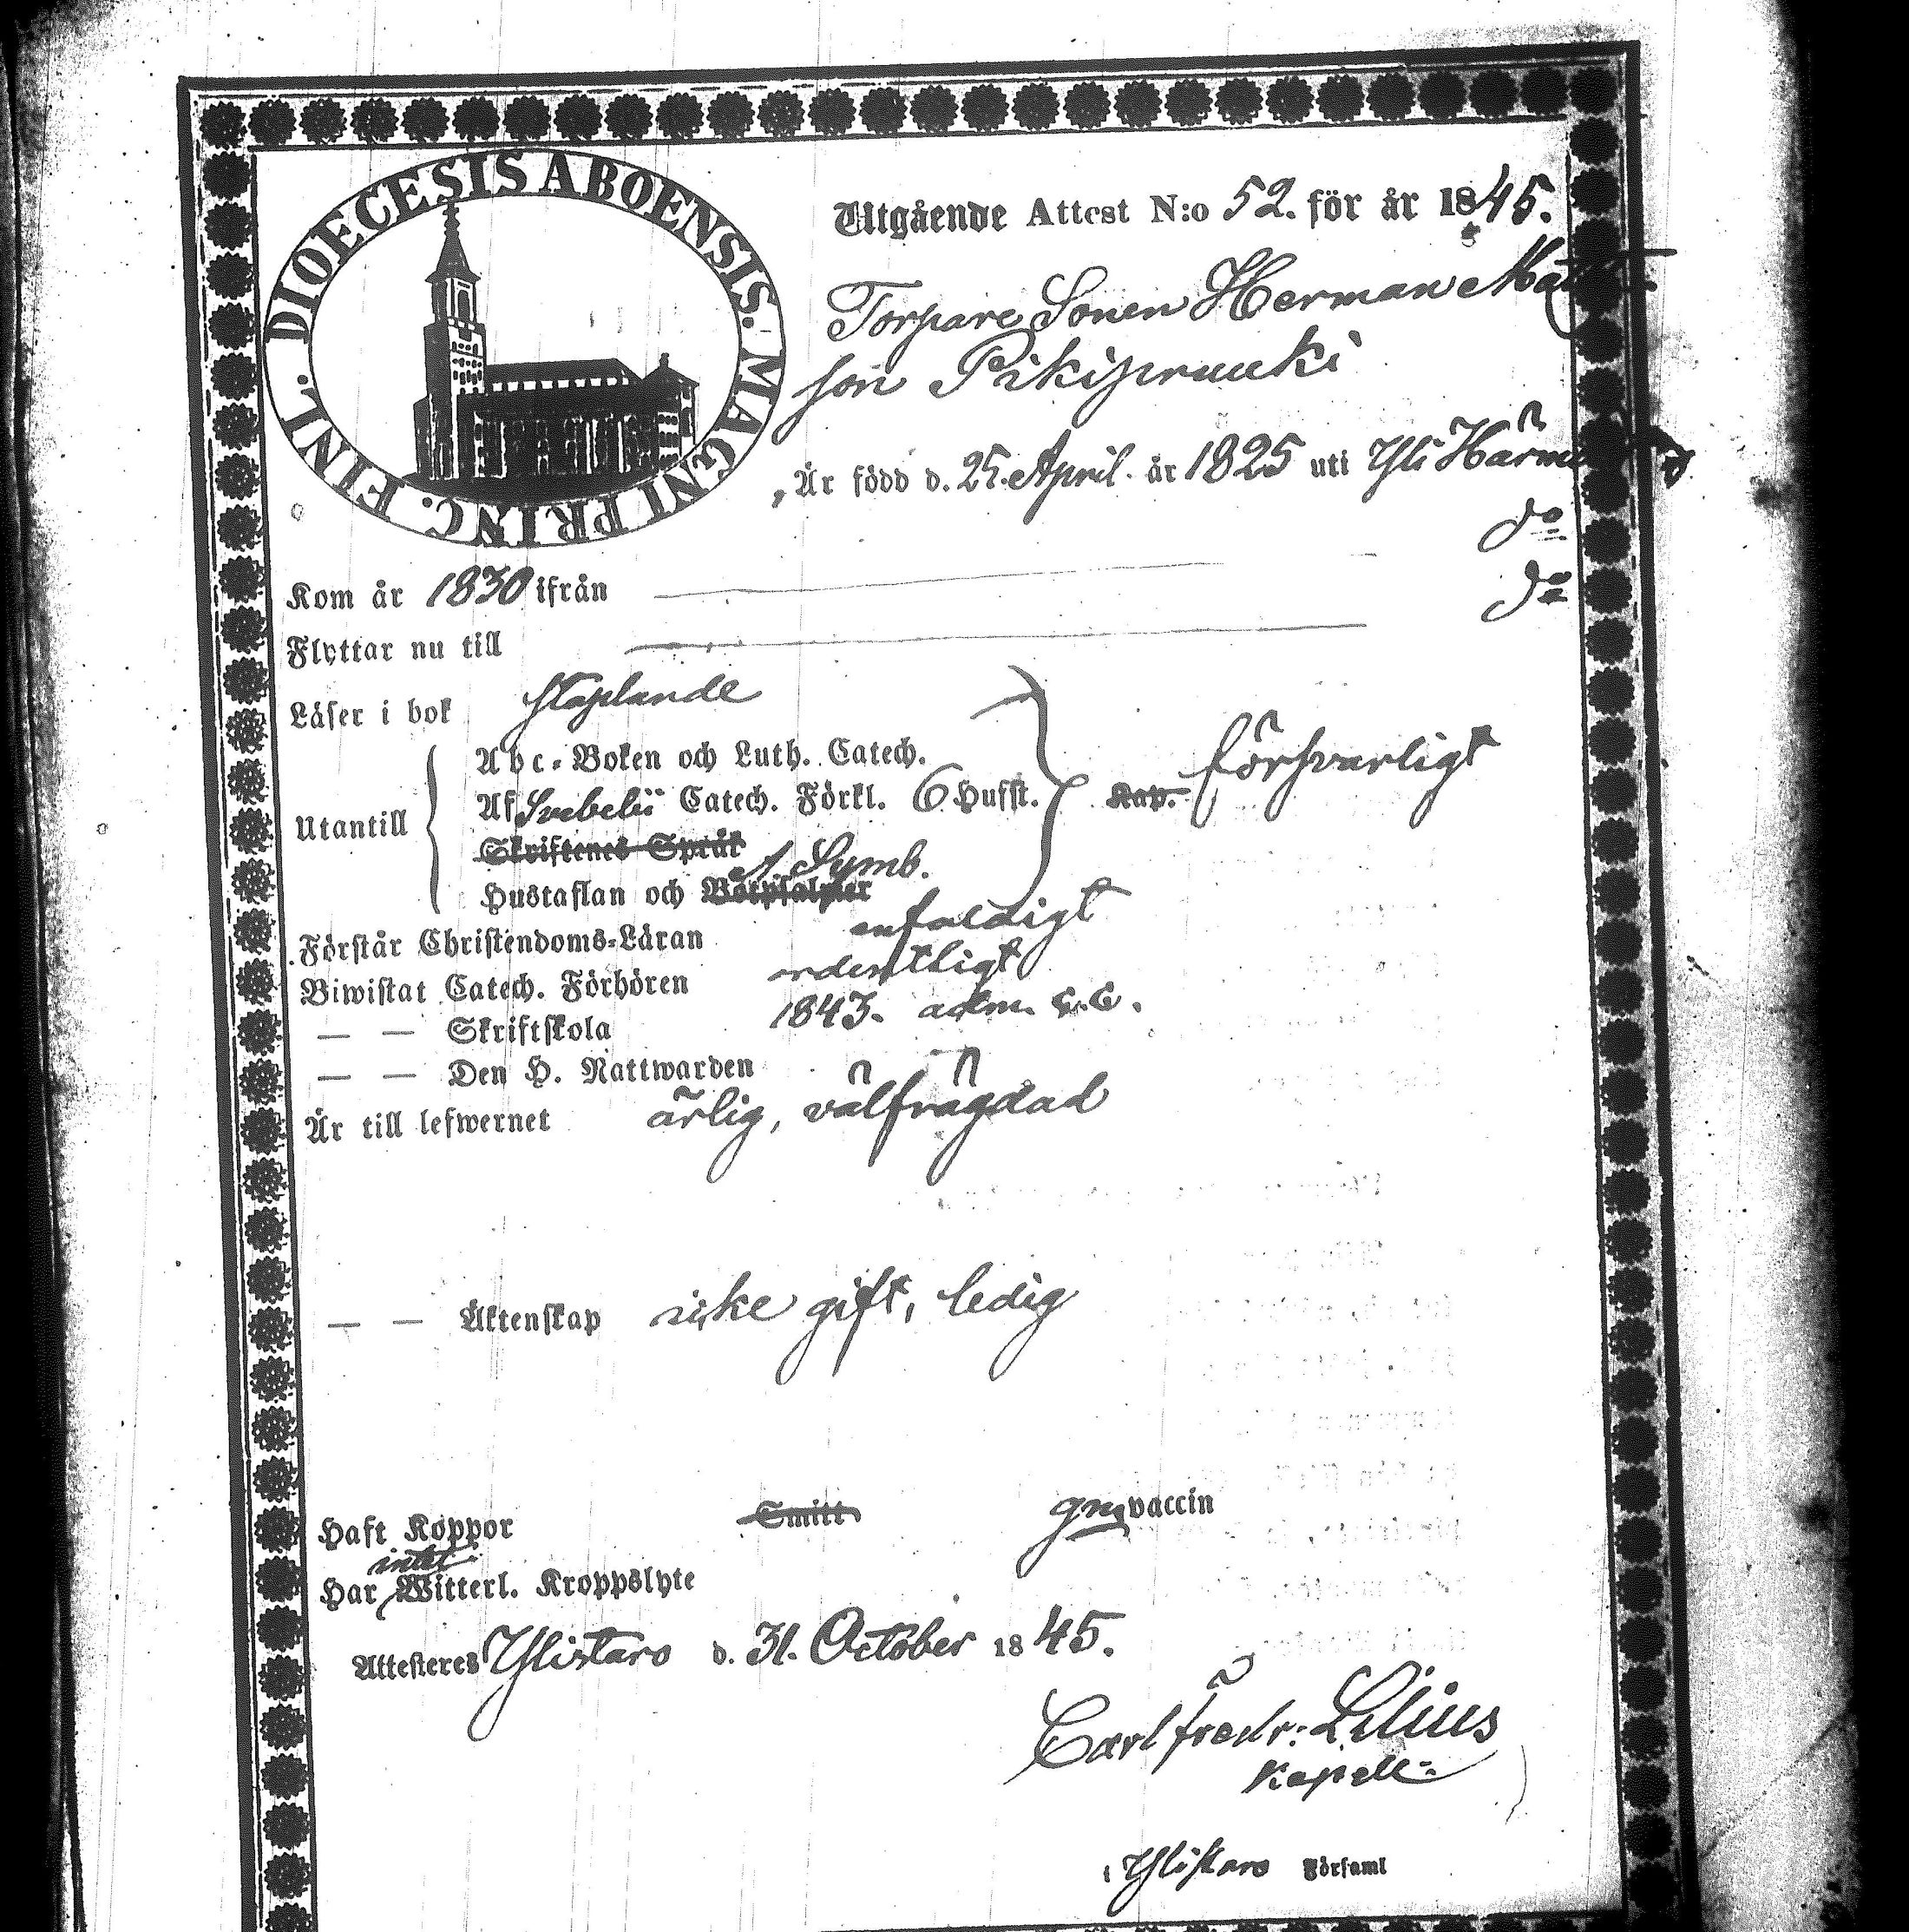 DIOECESIS ABOENSIS. MAGNI PRINC. FINL.
Utgående Attest N:o 52. för år 1845.
Torpare Sonen Herman Matts
son Pikipruuki
Är född d. 25. April. år 1825 uti Yli Härmä
do
Kom år 1830 ifrån
do
Flyttar nu till
Läser i bok staplande
Abc-Boken och Luth. Catech.
Utantill
Af Svebelii Catech. Förkl. 6 Hufst. Kap. försvarligt
Skriftenes Språk
A Symb.
Hustaflan och Botpsalmer
Förstår Christendoms-Läran enfaldigt
Biwistat Catech. Förhören ordentligt
— — Skriftskola 1843. adm. S. C.
— — Den H. Nattwarden
Är till lefwernet ärlig, välfrägdad
— — Äktenskap icke gift, ledig
Haft Koppor Smitt gm vaccin
intet
Har Witterl. Kroppslyte
Attesteres Ylistaro d. 31. October 1845.
Carl Fredr: Lilius
Kapell:
i Ylistaro Församl